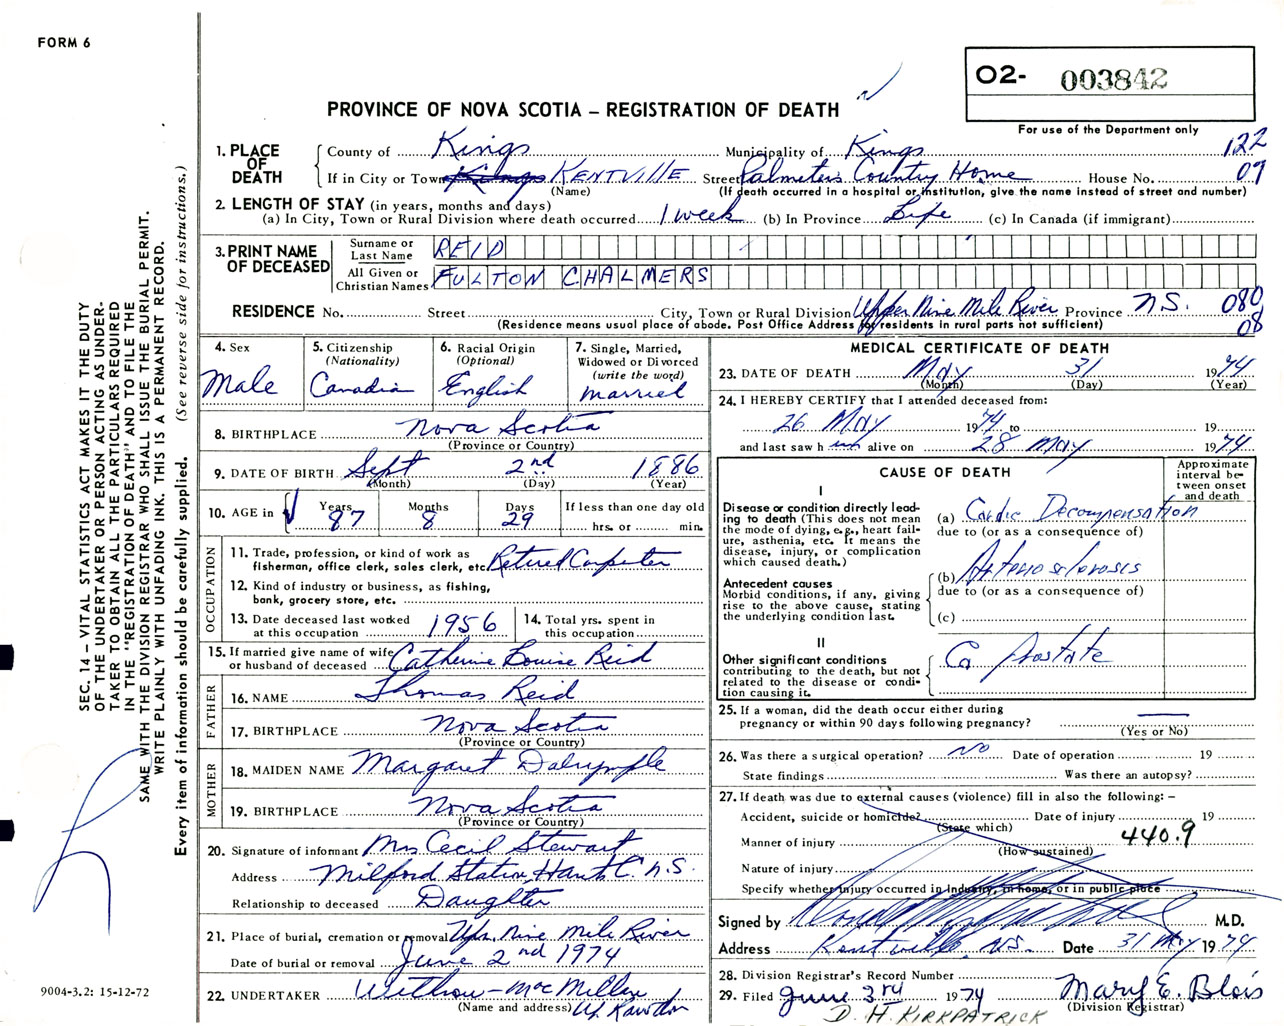 FORM 6
O2- 003842
For use of the Department only
PROVINCE OF NOVA SCOTIA – REGISTRATION OF DEATH
1. PLACE OF DEATH
County of Kings Municipality of Kings 122
If in City or Town Kings KENTVILLE Street Palmeters Country Home House No. 09
(Name) (If death occurred in a hospital or institution, give the name instead of street and number)
2. LENGTH OF STAY (in years, months and days)
(a) In City, Town or Rural Division where death occurred 1 week (b) In Province Life (c) In Canada (if immigrant)
3. PRINT NAME OF DECEASED
Surname or Last Name REID
All Given or Christian Names FULTON CHALMERS
RESIDENCE No. Street City, Town or Rural Division Upper Nine Mile River Province N.S. 080
(Residence means usual place of abode. Post Office Address for residents in rural parts not sufficient) 08
4. Sex
Male
5. Citizenship
(Nationality)
Canadian
6. Racial Origin
(Optional)
English
7. Single, Married,
Widowed or Divorced
(write the word)
married
8. BIRTHPLACE Nova Scotia
(Province or Country)
9. DATE OF BIRTH Sept 2nd 1886
(Month) (Day) (Year)
10. AGE in Years 87 Months 8 Days 29 If less than one day old
hrs. or min.
OCCUPATION
11. Trade, profession, or kind of work as
fisherman, office clerk, sales clerk, etc. Retired Carpenter
12. Kind of industry or business, as fishing,
bank, grocery store, etc.
13. Date deceased last worked
at this occupation 1956
14. Total yrs. spent in
this occupation
15. If married give name of wife
or husband of deceased Catherine Louise Reid
FATHER
16. NAME Thomas Reid
17. BIRTHPLACE Nova Scotia
(Province or Country)
MOTHER
18. MAIDEN NAME Margaret Dalrymple
19. BIRTHPLACE Nova Scotia
(Province or Country)
20. Signature of informant Mrs Cecil Stewart
Address Milford Station, Hants C. N.S.
Relationship to deceased Daughter
21. Place of burial, cremation or removal Upr. Nine Mile River
Date of burial or removal June 2nd 1974
22. UNDERTAKER Withrow-McMillan
(Name and address) Up. Rawdon
MEDICAL CERTIFICATE OF DEATH
23. DATE OF DEATH May 31 1974
(Month) (Day) (Year)
24. I HEREBY CERTIFY that I attended deceased from:
26 May 1974 to 19
and last saw h im alive on 28 May 1974
CAUSE OF DEATH
Approximate
interval be-
tween onset
and death
I
Disease or condition directly lead-
ing to death (This does not mean
the mode of dying, e.g., heart fail-
ure, asthenia, etc. It means the
disease, injury, or complication
which caused death.)
(a) Cardiac Decompensation
due to (or as a consequence of)
Antecedent causes
Morbid conditions, if any, giving
rise to the above cause, stating
the underlying condition last.
(b) Arteriosclerosis
due to (or as a consequence of)
(c)
II
Other significant conditions
contributing to the death, but not
related to the disease or condi-
tion causing it.
Ca Prostate
25. If a woman, did the death occur either during
pregnancy or within 90 days following pregnancy?
(Yes or No)
26. Was there a surgical operation? no Date of operation 19
State findings Was there an autopsy?
27. If death was due to external causes (violence) fill in also the following: –
Accident, suicide or homicide? Date of injury 19
(State which)
Manner of injury 440.9
(How sustained)
Nature of injury
Specify whether injury occurred in industry, in home, or in public place
Signed by M.D.
Address Kentville, N.S. Date 31 May 1974
28. Division Registrar's Record Number
29. Filed June 3rd 1974 Mary E. Blois
(Division Registrar)
D. H. KIRKPATRICK
SEC. 14 – VITAL STATISTICS ACT MAKES IT THE DUTY
OF THE UNDERTAKER OR PERSON ACTING AS UNDER-
TAKER TO OBTAIN ALL THE PARTICULARS REQUIRED
IN THE "REGISTRATION OF DEATH" AND TO FILE THE
SAME WITH THE DIVISION REGISTRAR WHO SHALL ISSUE THE BURIAL PERMIT.
WRITE PLAINLY WITH UNFADING INK. THIS IS A PERMANENT RECORD.
Every item of information should be carefully supplied. (See reverse side for instructions.)
9004-3.2: 15-12-72